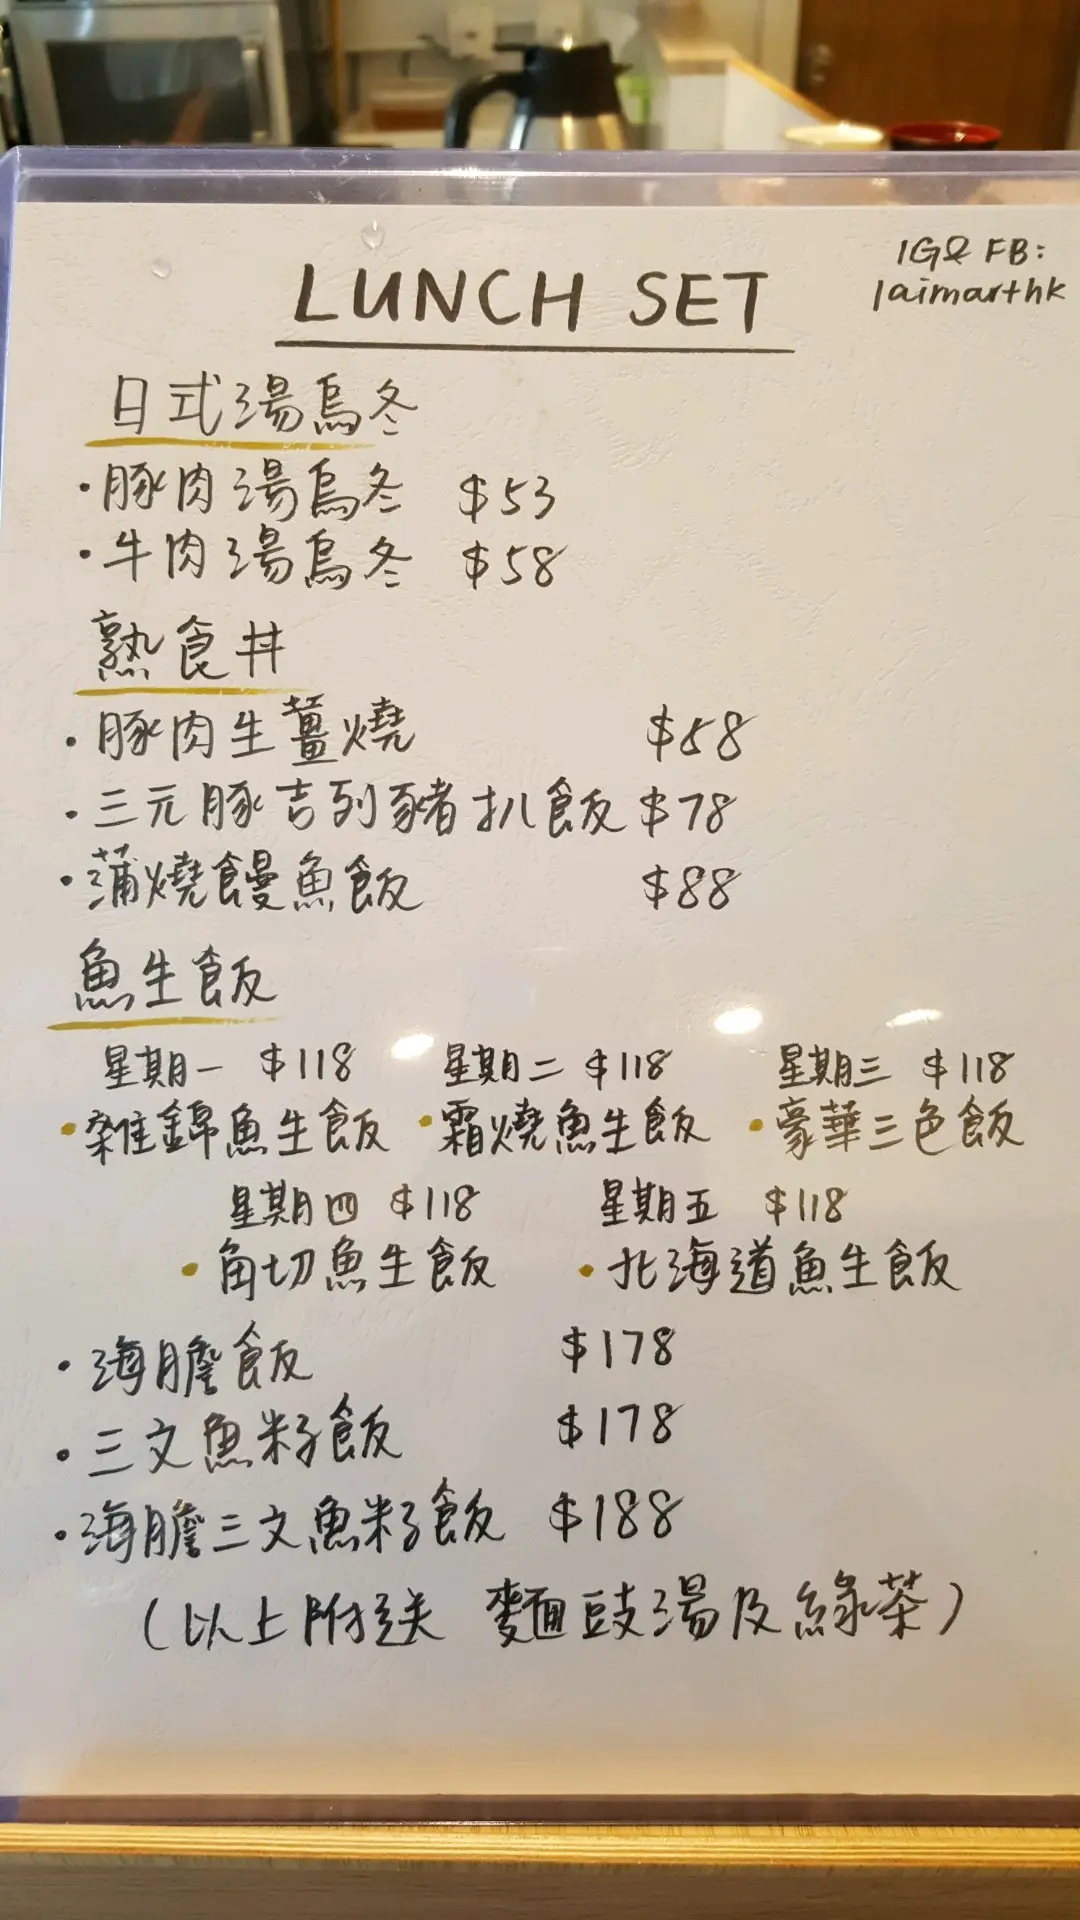 IG & FB:
laimarthk
LUNCH SET
日式湯烏冬
・豚肉湯烏冬 $53
・牛肉湯烏冬 $58
熟食丼
・豚肉生薑燒 $58
・三元豚吉列豬扒飯 $78
・蒲燒饅魚飯 $88
魚生飯
星期一 $118 星期二 $118 星期三 $118
・雜錦魚生飯 ・霜燒魚生飯 ・豪華三色飯
星期四 $118 星期五 $118
・角切魚生飯 ・北海道魚生飯
・海膽飯 $178
・三文魚籽飯 $178
・海膽三文魚籽飯 $188
(以上附送 麵豉湯及綠茶)